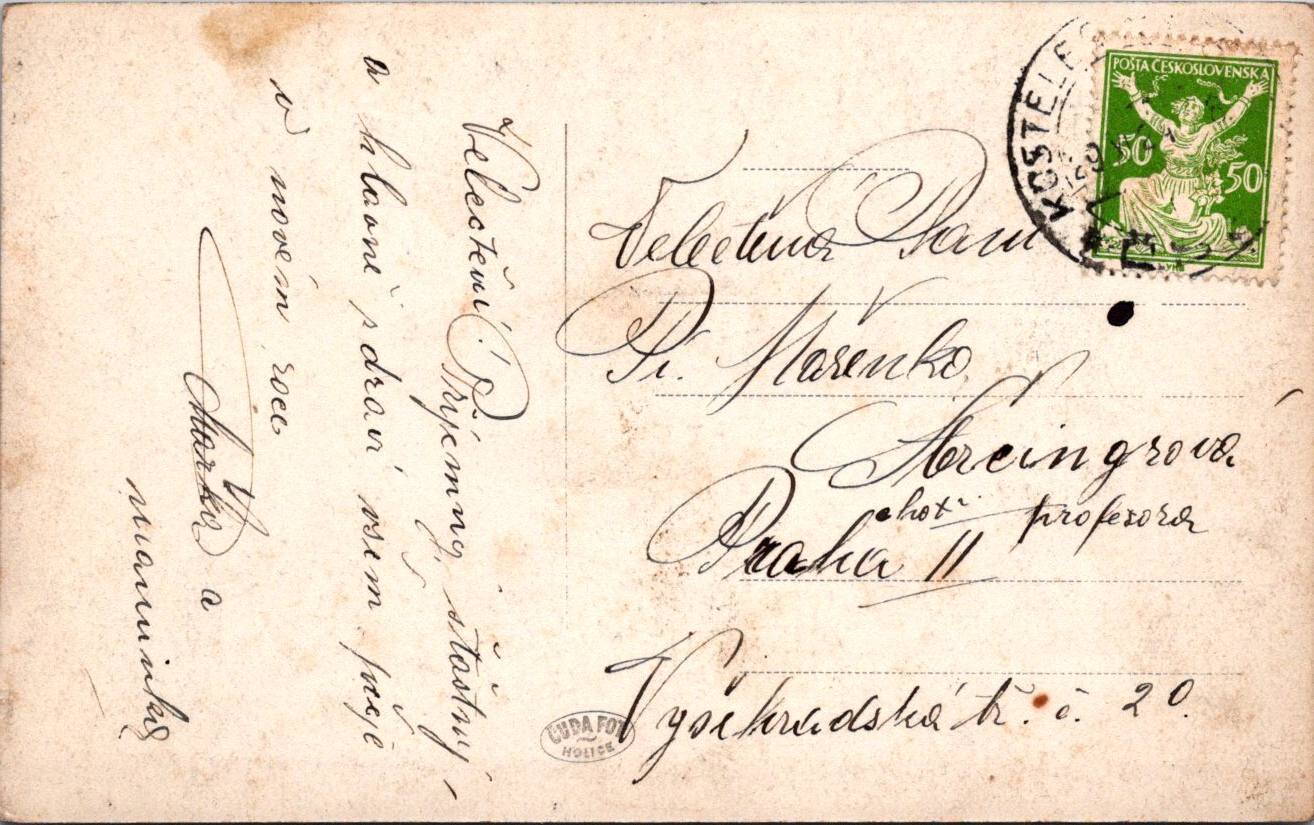 Velectění! Přijemný, šťastný,
a hlavně zdraví všem přeje
v novém roce
Mařka a
maminka
POŠTA ČESKOSLOVENSKÁ
50
50
KOSTELEC
Velectěná Paní
Pí. Mařenka
choť profesora
Praha II
Vyšehradská tř. č. 20.
ČUDA FOT
HOLICE